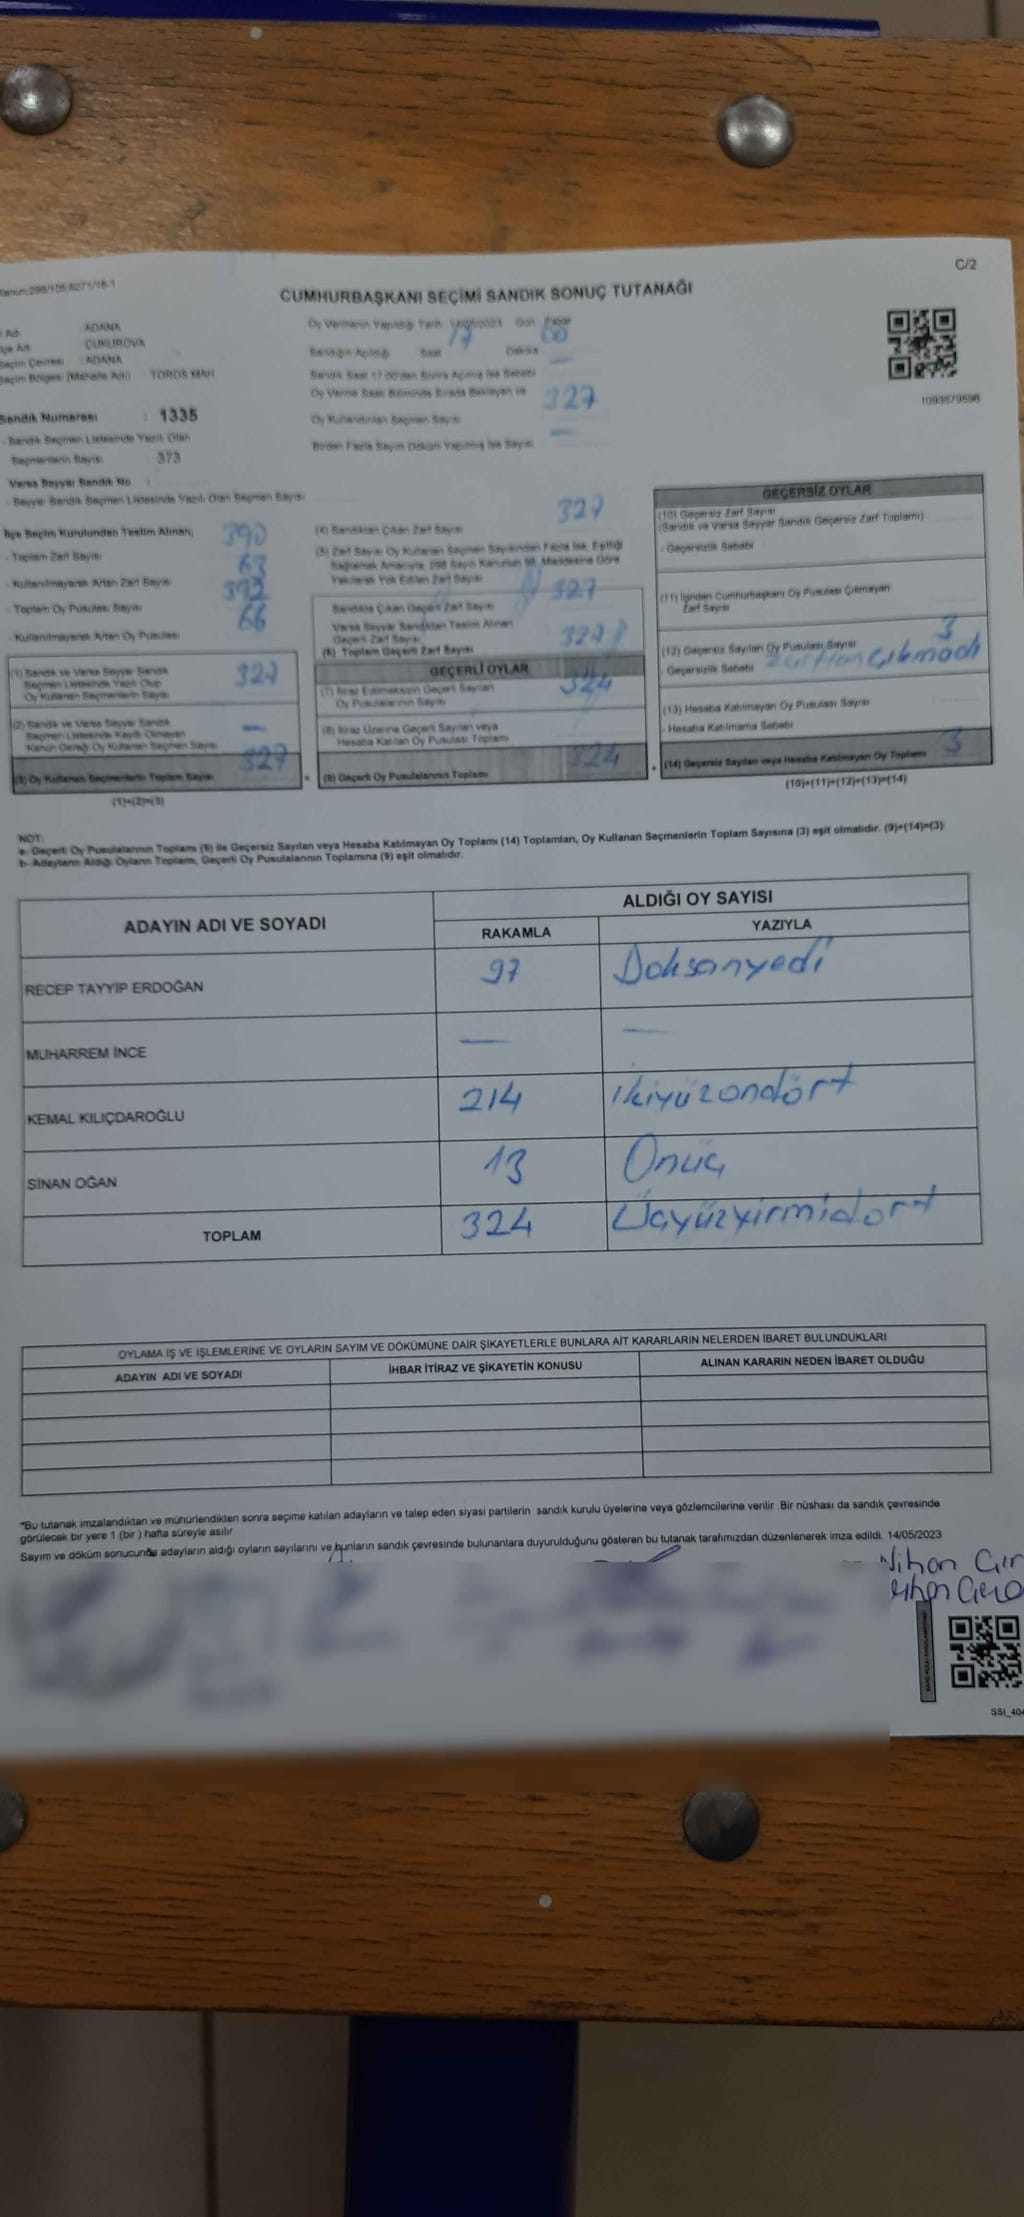 C/2
CUMHURBAŞKANI SEÇİMİ SANDIK SONUÇ TUTANAĞI
ADANA
ÇUKUROVA
Seçim Çevresi : ADANA
Seçim Bölgesi (Mahalle Adı) TOROS MAH
Oy Vermenin Yapıldığı Tarih 14/05/2023 Gün Pazar
Sandığın Açıldığı Saat 17 Dakika 00
Sandık Saat 17.00'den Sonra Açılmış İse Sebebi —
Oy Verme Saati Bitiminde Sırada Bekleyen ve
Oy Kullandırılan Seçmen Sayısı 327
Birden Fazla Sayım Döküm Yapılmış İse Sayısı —
1093879598
Sandık Numarası : 1335
- Sandık Seçmen Listesinde Yazılı Olan
Seçmenlerin Sayısı : 373
Varsa Seyyar Sandık No :
- Seyyar Sandık Seçmen Listesinde Yazılı Olan Seçmen Sayısı
İlçe Seçim Kurulundan Teslim Alınan;
- Toplam Zarf Sayısı 390
- Kullanılmayarak Artan Zarf Sayısı 63
- Toplam Oy Pusulası Sayısı 393
- Kullanılmayarak Artan Oy Pusulası 66
(1) Sandık ve Varsa Seyyar Sandık
Seçmen Listesinde Yazılı Olup
Oy Kullanan Seçmenlerin Sayısı 327
(2) Sandık ve Varsa Seyyar Sandık
Seçmen Listesinde Kayıtlı Olmayan
Kanun Gereği Oy Kullanan Seçmen Sayısı —
(3) Oy Kullanan Seçmenlerin Toplam Sayısı 327
(1)+(2)=(3)
(4) Sandıktan Çıkan Zarf Sayısı 327
(5) Zarf Sayısı Oy Kullanan Seçmen Sayısından Fazla İse, Eşitliği
Sağlamak Amacıyla, 298 Sayılı Kanunun 98. Maddesine Göre
Yakılarak Yok Edilen Zarf Sayısı
Sandıkta Çıkan Geçerli Zarf Sayısı 327
Varsa Seyyar Sandıktan Teslim Alınan
Geçerli Zarf Sayısı
(6) Toplam Geçerli Zarf Sayısı 327
GEÇERLİ OYLAR
(7) İtiraz Edilmeksizin Geçerli Sayılan
Oy Pusulalarının Sayısı 324
(8) İtiraz Üzerine Geçerli Sayılan veya
Hesaba Katılan Oy Pusulası Toplamı
(9) Geçerli Oy Pusulalarının Toplamı 324
GEÇERSİZ OYLAR
(10) Geçersiz Zarf Sayısı
(Sandık ve Varsa Seyyar Sandık Geçersiz Zarf Toplamı)
- Geçersizlik Sebebi
(11) İçinden Cumhurbaşkanı Oy Pusulası Çıkmayan
Zarf Sayısı
(12) Geçersiz Sayılan Oy Pusulası Sayısı 3
Geçersizlik Sebebi zarftan çıkmadı
(13) Hesaba Katılmayan Oy Pusulası Sayısı
- Hesaba Katılmama Sebebi
(14) Geçersiz Sayılan veya Hesaba Katılmayan Oy Toplamı 3
(10)+(11)+(12)+(13)=(14)
NOT:
a- Geçerli Oy Pusulalarının Toplamı (9) ile Geçersiz Sayılan veya Hesaba Katılmayan Oy Toplamı (14) Toplamları, Oy Kullanan Seçmenlerin Toplam Sayısına (3) eşit olmalıdır. (9)+(14)=(3)
b- Adayların Aldığı Oyların Toplamı, Geçerli Oy Pusulalarının Toplamına (9) eşit olmalıdır.
ADAYIN ADI VE SOYADI ALDIĞI OY SAYISI
RAKAMLA YAZIYLA
RECEP TAYYİP ERDOĞAN 97 Doksanyedi
MUHARREM İNCE — —
KEMAL KILIÇDAROĞLU 214 ikiyüzondört
SİNAN OĞAN 13 Onüç
TOPLAM 324 Üçyüzyirmidört
OYLAMA İŞ VE İŞLEMLERİNE VE OYLARIN SAYIM VE DÖKÜMÜNE DAİR ŞİKAYETLERLE BUNLARA AİT KARARLARIN NELERDEN İBARET BULUNDUKLARI
ADAYIN ADI VE SOYADI İHBAR İTİRAZ VE ŞİKAYETİN KONUSU ALINAN KARARIN NEDEN İBARET OLDUĞU
*Bu tutanak imzalandıktan ve mühürlendikten sonra seçime katılan adayların ve talep eden siyasi partilerin sandık kurulu üyelerine veya gözlemcilerine verilir .Bir nüshası da sandık çevresinde
görülecek bir yere 1 (bir ) hafta süreyle asılır.
Sayım ve döküm sonucunda adayların aldığı oyların sayılarını ve bunların sandık çevresinde bulunanlara duyurulduğunu gösteren bu tutanak tarafımızdan düzenlenerek imza edildi. 14/05/2023
Nihan
SSI_404